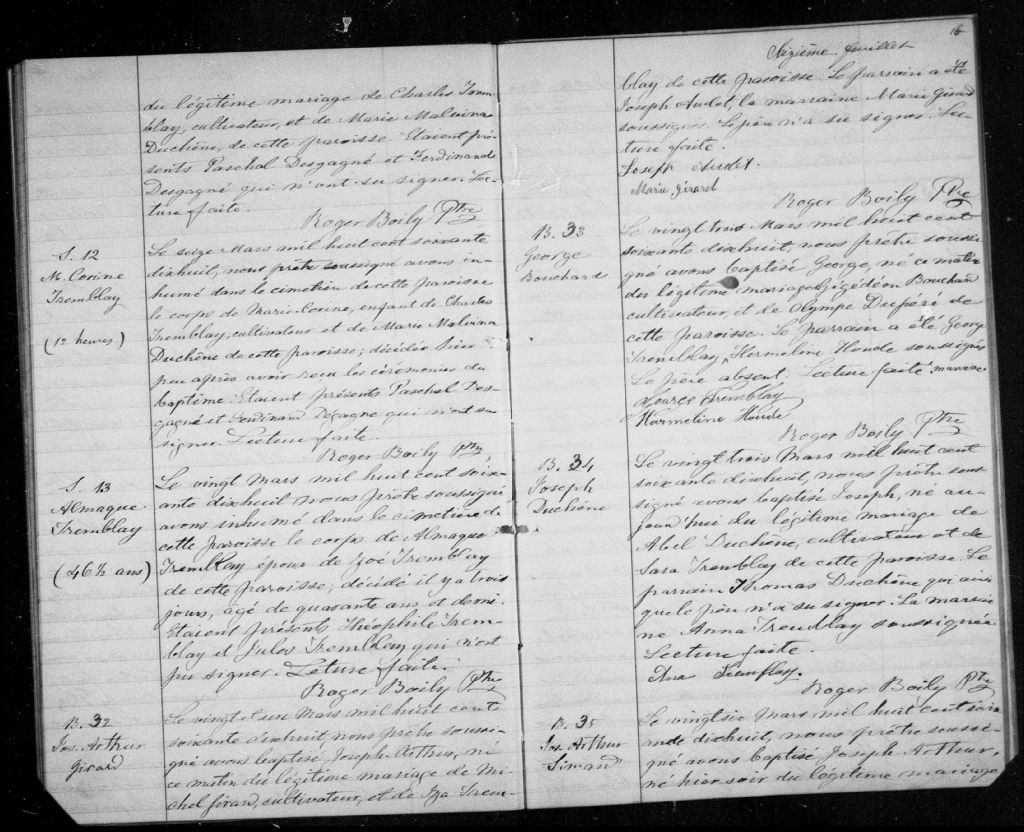 du légitime mariage de Charles Trem-
blay, cultivateur, et de Marie Malvina
Duchêne, de cette paroisse. Etaient pré-
sents Paschal Desgagné et Ferdinand
Desgagné qui n'ont su signer. Lec-
ture faite.
Roger Boily Ptre
S. 12
M. Corine
Tremblay
(12 heures)
Le seize Mars mil huit cent soixante
dixhuit, nous prêtre soussigné avons in-
humé dans le cimetière de cette paroisse
le corps de Marie-Corine, enfant de Charles
Tremblay, cultivateur et de Marie Malvina
Duchêne de cette paroisse; décédée hier
peu après avoir reçu les cérémonies du
baptême. Etaient présents Paschal Des-
gagné et Ferdinand Degagne qui n'ont su
signer. Lecture faite.
Roger Boily Ptre
S. 13
Almaque
Tremblay
(46½ ans)
Le vingt Mars mil huit cent soix-
ante dixhuit nous prêtre soussigné
avons inhumé dans le cimetière de
cette paroisse le corps de Almaque
Tremblay époux de Zoé Tremblay
de cette paroisse; décédé il y a trois
jours, agé de quarante ans et demi.
Etaient présents Théophile Trem-
blay et Jules Tremblay qui n'ont
pu signer. Lecture faite.
Roger Boily Ptre
B. 32
Jos. Arthur
Girard
Le vingt et un Mars mil huit cent
soixante dixhuit nous prêtre soussi-
gné avons baptisé Joseph-Arthur, né
ce matin du légitime mariage de Mi-
chel Girard, cultivateur, et de Trem-
16
Seizième feuillet
blay de cette paroisse. Le parrain a été
Joseph Audet, la marraine Marie Girard
soussignés. Le père n'a su signer. Lec-
ture faite.
Joseph Audet.
Marie Girard
Roger Boily Ptre
B. 33
George
Bouchard
Le vingt trois Mars mil huit cent
soixante dixhuit, nous prêtre soussi-
gné avons baptisé George, né ce matin
du légitime mariage Gégédéon Bouchard
cultivateur, et de Olympe Dufséré de
cette paroisse. Le parrain a été George
Tremblay, Hermeline Houde soussignés
Le père absent. Lecture faite. marraine
Tremblay
Harmeline Houde
Roger Boily Ptre
B. 34
Joseph
Duchêne
Le vingt trois Mars mil huit cent
soixante dixhuit, nous prêtre sous-
signé avons baptisé Joseph, né au-
jourd'hui du légitime mariage de
Abel Duchêne, cultivateur et de
Sara Tremblay de cette paroisse. Le
parrain Thomas Duchêne qui ainsi
que le père n'a su signer. La marrai-
ne Anna Tremblay soussignée
Lecture faite.
Ana Tremblay.
Roger Boily Ptre
B. 35
Jos. Arthur
Simard
Le vingt six Mars mil huit cent soix-
ante dixhuit, nous prêtre soussi-
gné avons baptisé Joseph Arthur,
né hier soir du légitime mariage